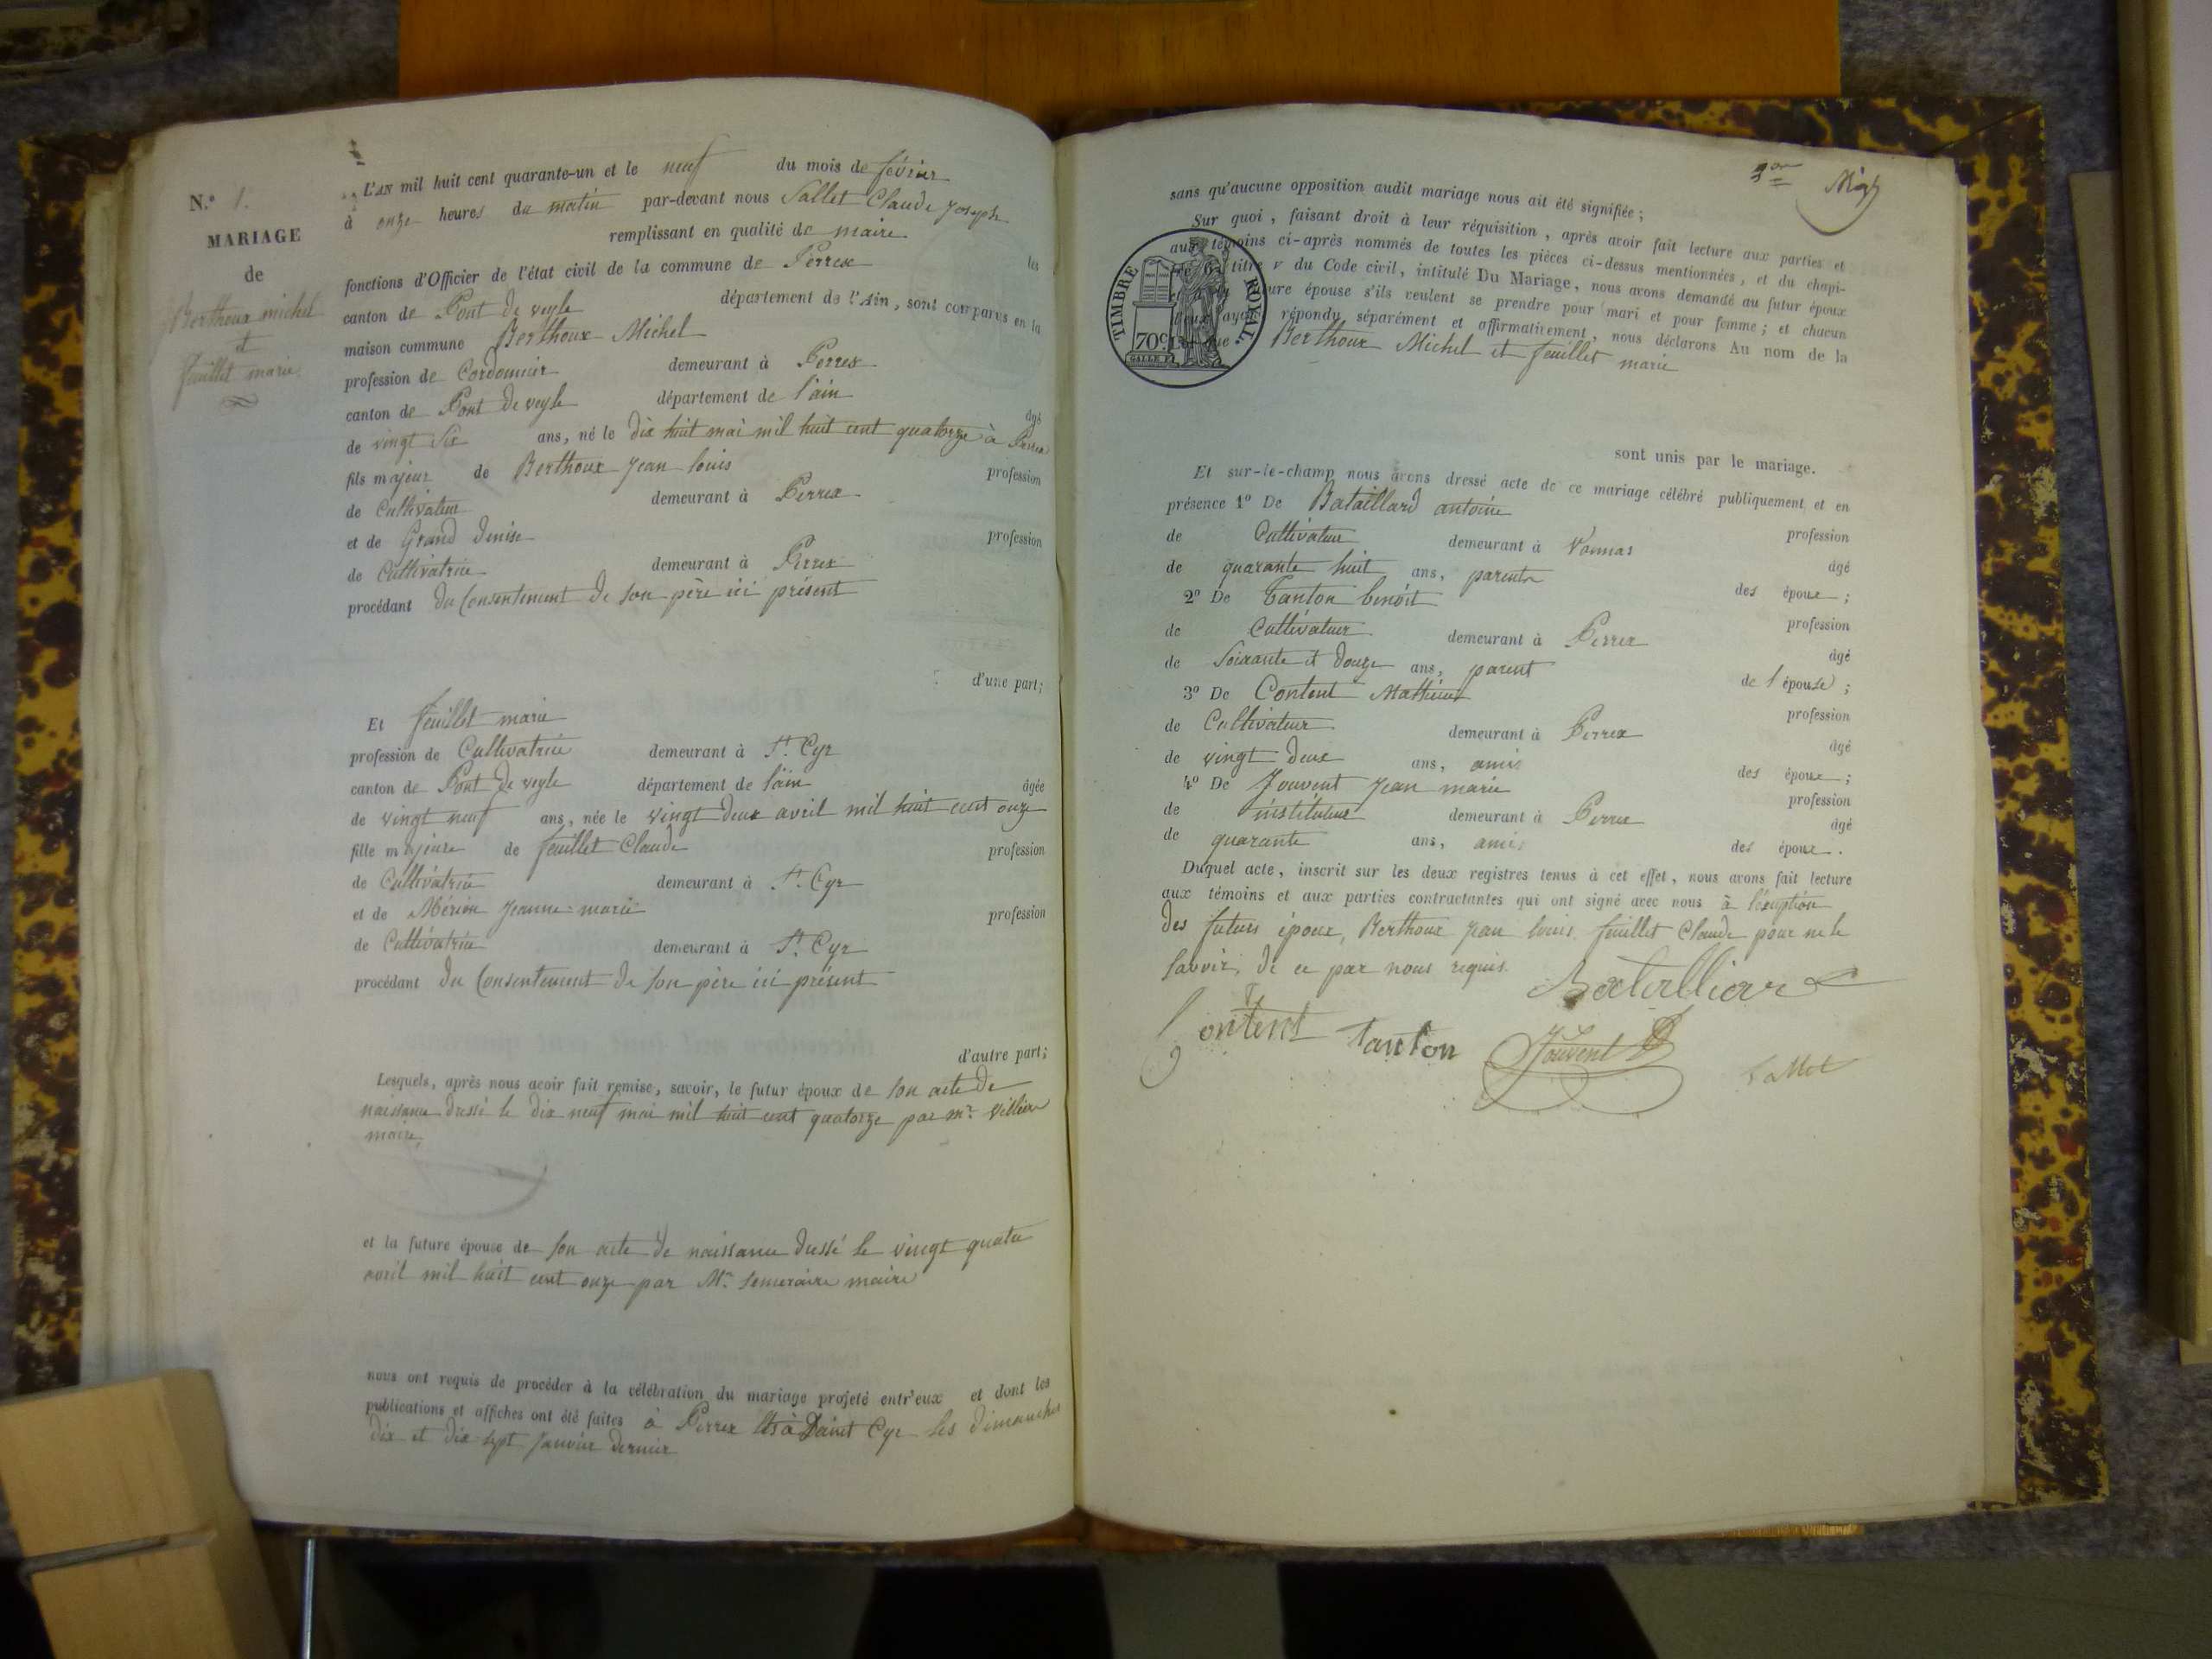 N.° 1.
MARIAGE
de
Berthoux michel
et
feuillet marie
L'AN mil huit cent quarante-un et le neuf du mois de février
à onze heures du matin par-devant nous Sallet Claude Joseph
remplissant en qualité de maire les
fonctions d'Officier de l'état civil de la commune de Perrex
canton de Pont de veyle département de l'Ain, sont comparus en la
maison commune Berthoux Michel
profession de Cordonnier demeurant à Perrex
canton de Pont de veyle département de l'ain âgé
de vingt Six ans, né le dix huit mai mil huit cent quatorze à Perrex
fils majeur de Berthoux Jean louis profession
de Cultivateur demeurant à Perrex
et de Grand Denise profession
de Cultivatrice demeurant à Perrex
procédant du Consentement de son père ici présent
d'une part;
Et feuillet marie
profession de Cultivatrice demeurant à St. Cyr
canton de Pont de veyle département de l'ain âgée
de vingt neuf ans, née le vingt deux avril mil huit cent onze
fille majeure de feuillet Claude profession
de Cultivatrice demeurant à St. Cyr
et de Mérion Jeanne marie profession
de Cultivatrice demeurant à St. Cyr
procédant du Consentement de son père ici présent
d'autre part;
Lesquels, après nous avoir fait remise, savoir, le futur époux de son acte de
naissance dressé le dix neuf mai mil huit cent quatorze par mr. Villière
maire
et la future épouse de son acte de naissance dressé le vingt quatre
avril mil huit cent onze par Mr. Semeraire maire
nous ont requis de procéder à la célébration du mariage projeté entr'eux et dont les
publications et affiches ont été faites à Perrex et à Saint Cyr les dimanches
dix et dix sept Janvier dernier
sans qu'aucune opposition audit mariage nous ait été signifiée;
Sur quoi, faisant droit à leur réquisition, après avoir fait lecture aux parties et
aux témoins ci-après nommés de toutes les pièces ci-dessus mentionnées, et du chapi-
tre 6 titre v du Code civil, intitulé Du Mariage, nous avons demandé au futur époux
et à la future épouse s'ils veulent se prendre pour mari et pour femme; et chacun
d'eux ayant répondu séparément et affirmativement, nous déclarons Au nom de la
loi que Berthoux Michel et feuillet marie
TIMBRE ROYAL.
70c
sont unis par le mariage.
Et sur-le-champ nous avons dressé acte de ce mariage célébré publiquement et en
présence 1° De Bataillard antoine profession
de Cultivateur demeurant à Vonnas âgé
de quarante huit ans, parents des époux;
2° De Tanton benoit profession
de Cultivateur demeurant à Perrex âgé
de Soixante et douze ans, parent de l'épouse;
3° De Content Mathieu profession
de Cultivateur demeurant à Perrex âgé
de vingt deux ans, amis des époux;
4° De Jouvent Jean marie profession
de instituteur demeurant à Perrex âgé
de quarante ans, amis des époux.
Duquel acte, inscrit sur les deux registres tenus à cet effet, nous avons fait lecture
aux témoins et aux parties contractantes qui ont signé avec nous à l'exeption
des futurs époux, Berthoux Jean louis, feuillet Claude pour ne le
savoir, de ce par nous requis.
Batalliar
Content Tanton Jouvent Sallet